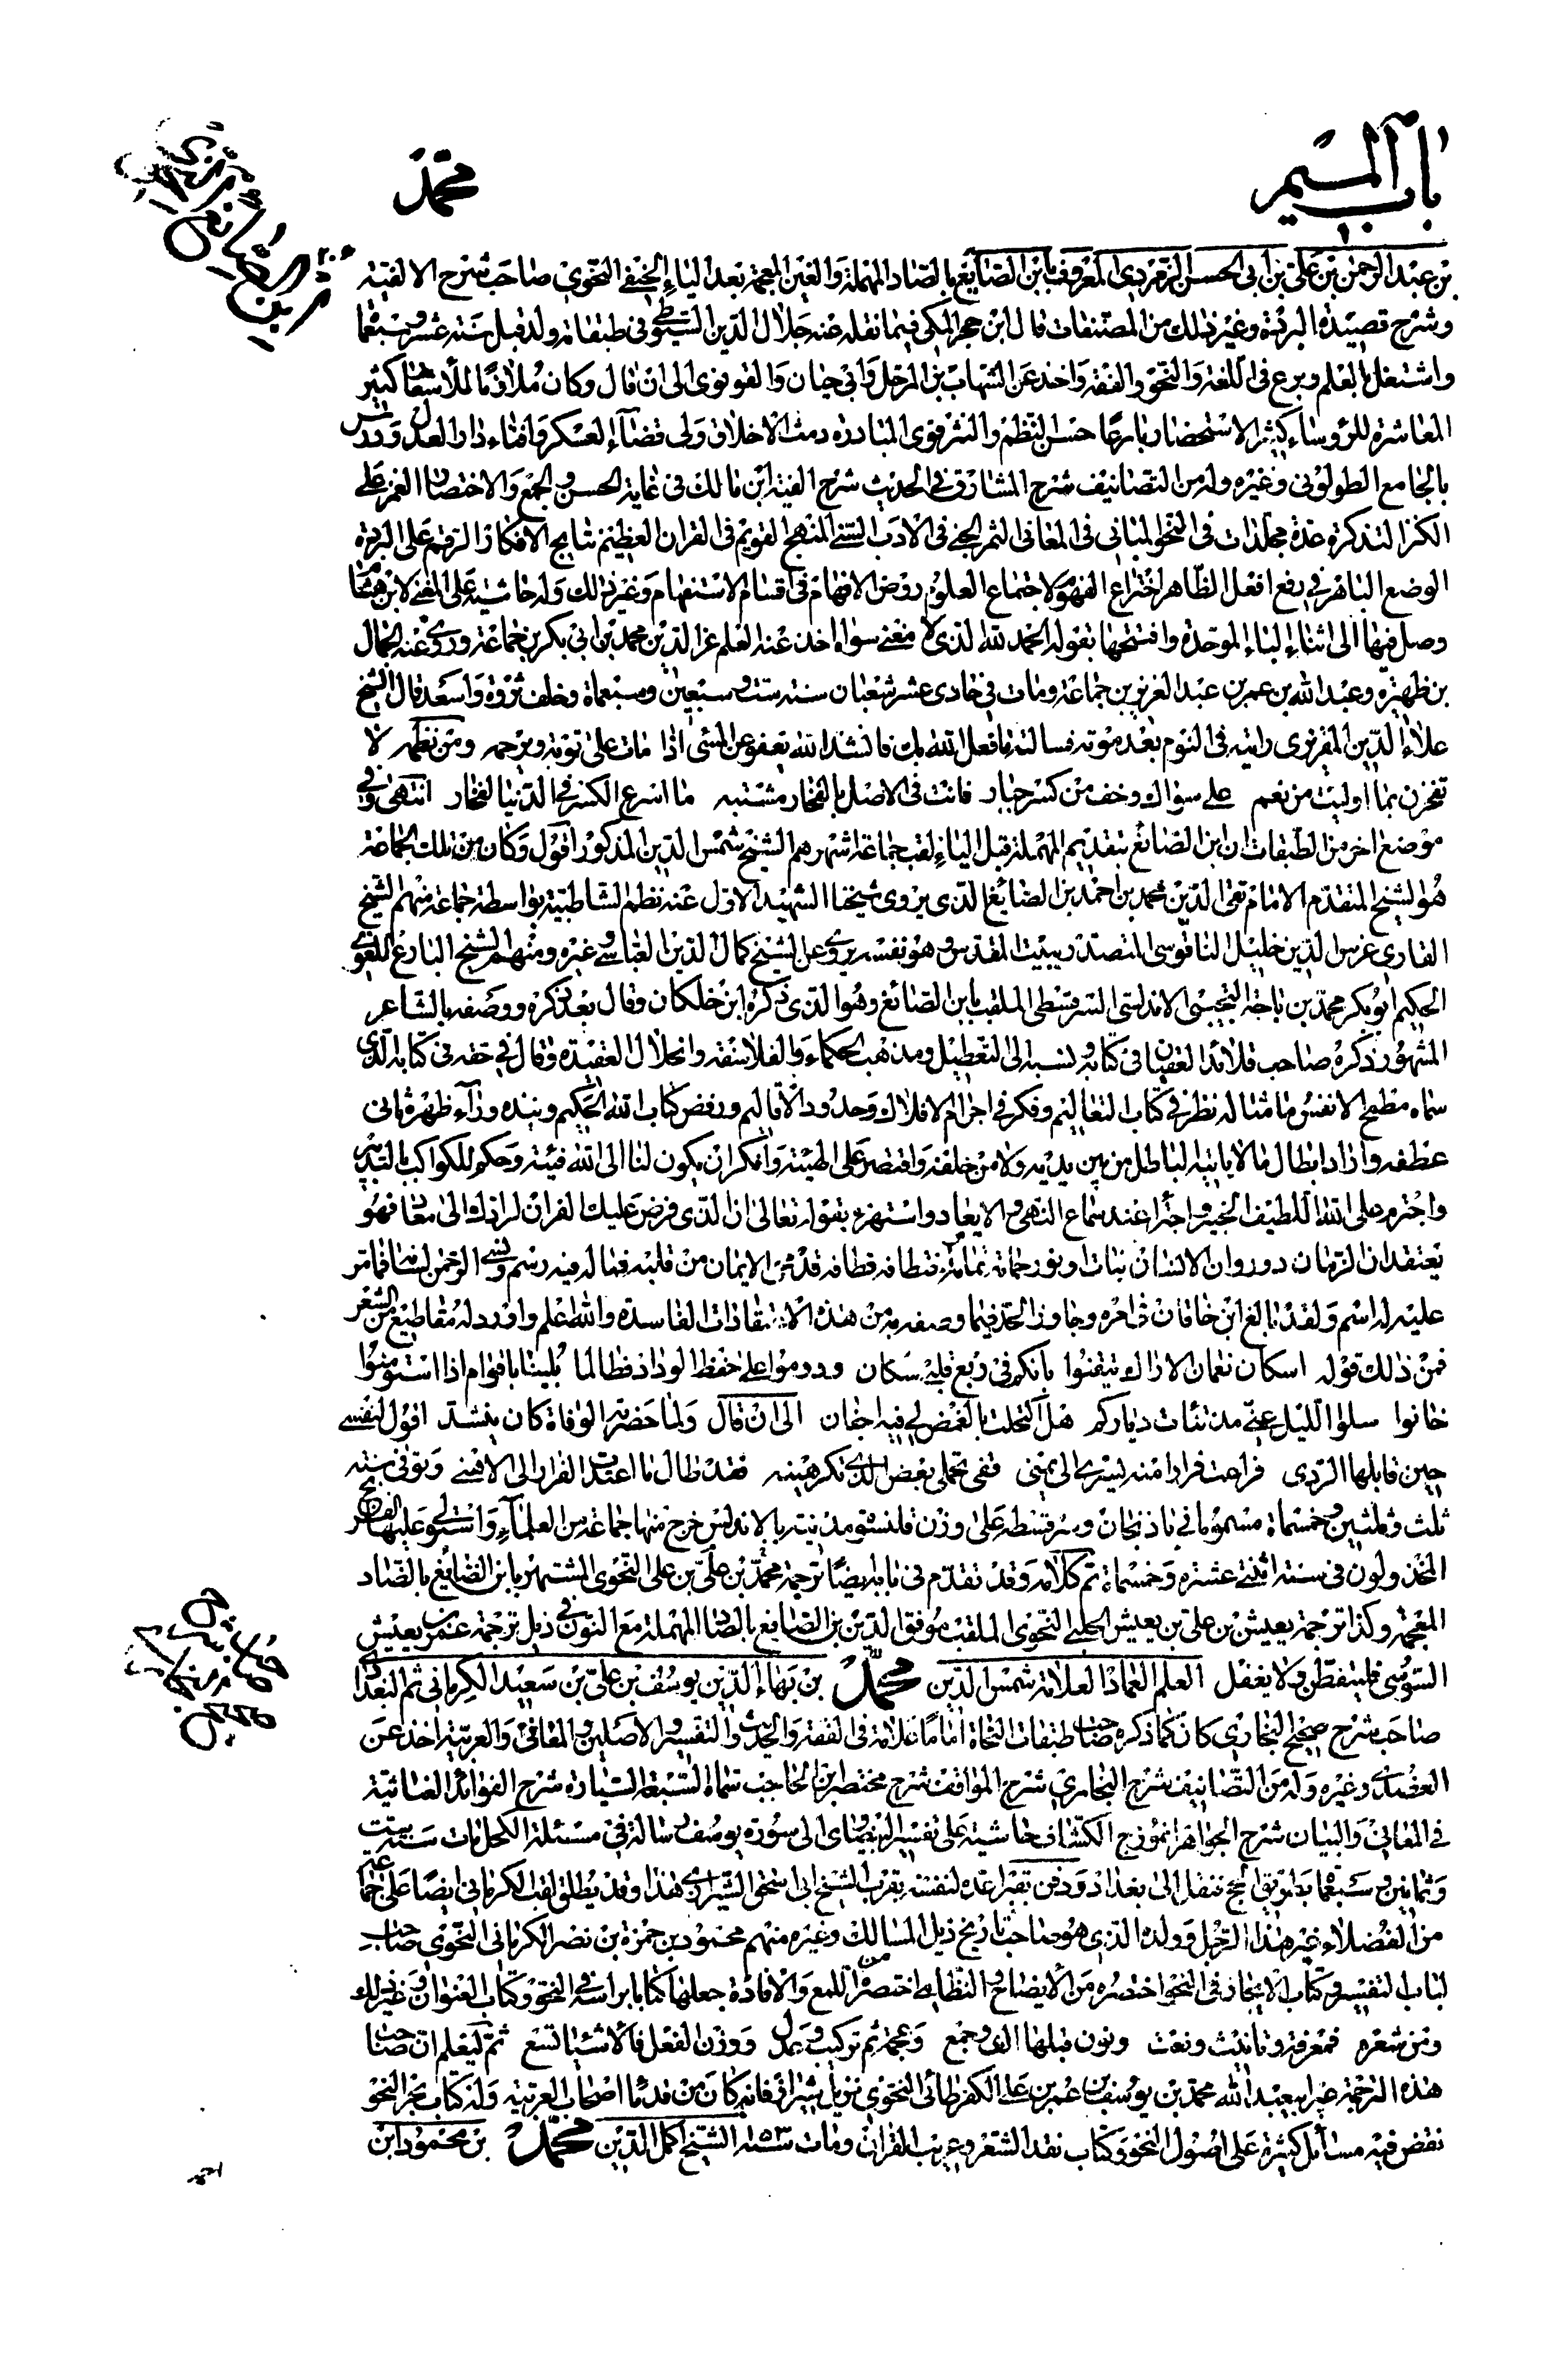 باب الميم
محمد
بن عبد الرحمن بن علي بن أبي الحسن الزمردي المعروف بابن الصايغ بالصاد المهملة والغين المعجمة بعد الياء الحنفي النحوي صاحب شرح الالفية
وشرح قصيدة البردة وغير ذلك من المصنفات قال ابن حجر المكي فيما نقله عنه جلال الدين السيوطي في طبقاته ولد قبل سنة عشر وسبعما
واشتغل بالعلم وبرع في اللغة والنحو والفقه واخذ عن الشهاب بن المرحل وابي حيان والقونوي الى ان قال وكان ملازما للاشتغا كثير
المعاشرة للرؤساء كثير الاستحضار بارعا حسن النظم والنثر قوي البادرة دمث الاخلاق ولي قضاء العسكر وافتاء دار العدل ودرس
بالجامع الطولوني وغيره وله من التصانيف شرح المشارق في الحديث شرح الفية ابن مالك في غاية الحسن والجمع والاختصار الغمز على
الكنز التذكرة عدة مجلدات في النحو المباني في المعاني الثمر الجني في الادب السني المنهج القويم في القران العظيم نتايج الافكار الرقم على البردة
الوضع الباهر في رفع افعل الظاهر اختراع الفهوم لاجتماع العلوم روض الافهام في اقسام الاستفهام وغير ذلك وله حاشية على المغني لابن هشام
وصل فيها الى اثناء الباء الموحدة وافتتحها بقوله الحمد لله الذي لا مغني سواه اخذ عنه العلم عز الدين محمد بن ابي بكر بن جماعة وروى عنه الجمال
بن ظهيرة وعبد الله بن عمر بن عبد العزيز بن جماعة ومات في حادي عشر شعبان سنة ست وسبعين وسبعماة وخلف ثروة واسعة قال الشيخ
علاء الدين المقريزي رايته في النوم بعد موته فسالته ما فعل الله بك فانشد الله يعفو عن المسئ اذا مات على توبة ويرحمه ومن نظمه لا
تفخرن بما اوليت من نعم على سواك وخف من كسر جبار فانت في الاصل بالفخار مشتبه ما اسرع الكسر في الدنيا لفخار انتهى وفي
موضع اخر من الطبقات ان ابن الضائغ بتقديم المهملة قبل الياء لقب جماعة اشهرهم الشيخ شمس الدين المذكور اقول وكان من تلك الجماعة
هو الشيخ المتقدم الامام تقي الدين محمد بن احمد بن الصايغ الذي يروي شيخنا الشهيد الاول عنه نظم الشاطبية بواسطة جماعة منهم الشيخ
القاري غرس الدين خليل الناقوسي المتصدر ببيت المقدس وهو نفسه يروي عن الشيخ كمال الدين العباسي وغيره ومنهم الشيخ البارع اللغوي
الحكيم ابو بكر محمد بن باجة التجيبي الاندلسي السرقسطي الملقب بابن الصائغ وهو الذي ذكره ابن خلكان وقال بعد ذكره ووصفه بالشاعر
المشهور ذكره صاحب قلائد العقيان في كتابه ونسبه الى التعطيل ومذهب الحكماء والفلاسفة وانحلال العقيدة وقال في حقه في كتابه الذي
سماه مطمح الانفس ما مثاله نظر في كتاب التعاليم وفكر في اجرام الافلاك وحدود الاقاليم ورفض كتاب الله الحكيم ونبذه وراء ظهره ثاني
عطفه واراد ابطال ما لا ياتيه الباطل من بين يديه ولا من خلفه واقتصر على الهيئة وانكر ان يكون لنا الى الله فيئة وحكم للكواكب بالتدبير
واجترم على الله اللطيف الخبير واجترا عند سماع النهي والايعاد واستهزء بقوله تعالى ان الذي فرض عليك القران لرادك الى معاد فهو
يعتقد ان الزمان دور وان الانسان نبات او نور حمامه تمامه واختطافه قطافه قد محي الايمان من قلبه فما له فيه رسم ونسي الرحمن لسانه فما تمر
عليه له اسم ولقد بالغ ابن خاقان في امره وجاوز الحد فيما وصفه به من هذه الاعتقادات الفاسدة والله اعلم واورد له مقاطيع من الشعر
فمن ذلك قوله اسكان نعمان الاراك تيقنوا بانكم في ربع قلبي سكان ودوموا على حفظ الوداد فطالما بلينا باقوام اذا استومنوا
خانوا سلوا الليل عني مذ تناءت دياركم هل اكتحلت بالغمض لي فيه اجفان الى ان قال ولما حضرته الوفاة كان ينشد اقول لنفسي
حين قابلها الردى فراحت فرارا منه يسرى الى يمنى قفي تحملي بعض الذي تكرهينه فقد طال ما اعتدت الفرار الى الاهنى وتوفى سنة
ثلث وثلثين وخمسماة مسموما في باذنجان وسرقسطة على وزن مدينة بالاندلس خرج منها جماعة من العلماء واستولى عليها الفرنج
المخذولون في سنة اثنتي عشرة وخمسماة تم كلامه وقد تقدم في بابه ايضا ترجمة محمد بن علي بن علي النحوي المشتهر بابن الضايع بالضاد
المعجمة وكذا ترجمة يعيش بن علي بن يعيش الحلبي النحوي الملقب موفق الدين بن الصايع بالصاد المهملة مع النون في ذيل ترجمة عمر بن يعيش
السوسي فليتفطن ولا يغفل العلم العماد العلامة شمس الدين محمد بن بهاء الدين يوسف بن علي بن سعيد الكرماني ثم البغدادي
صاحب شرح صحيح البخاري كان كما ذكره صاحب طبقات النحاة اماما علامة في الفقه والحديث والتفسير والاصلين والمعاني والعربية اخذ عن
العضدي وغيره وله من التصانيف شرح البخاري شرح المواقف شرح مختصر ابن الحاجب سماه السبعة السيارة شرح الفوائد الغياثية
في المعاني والبيان شرح الجواهر انموذج الكشاف حاشية على تفسير البيضاوي الى سورة يوسف رسالة في مسئلة الكحل مات سنة ست
وثمانين وسبعما بطريق الحج فنقل الى بغداد ودفن بقبر اعده لنفسه بقرب الشيخ ابي اسحق الشيرازي هذا وقد يطلق لقب الكرماني ايضا على جماعة
من الفضلاء غير هذا الرجل وولده الذي هو صاحب تاريخ ذيل المسالك وغيره منهم محمود بن حمزة بن نصر الكرماني النحوي صاحب
لباب التفسير وكتاب الايجاز في النحو اختصره من الايضاح والنظامي اختصره من اللمع والافادة جعلها كتابا براسه في النحو وكتاب العنوان وغير ذلك
ومن شعره فمعرفة وتانيث ونعت ونون قبلها الف وجمع وعجمة ثم تركيب وعدل ووزن الفعل فالاشيا تسع ثم ليعلم ان صاحب
هذه الترجمة غير ابي عبد الله محمد بن يوسف بن عمر بن علي الكفرطابي النحوي نزيل شيراز فانه كان من قدماء اصحاب العربية وله كتاب بحر النحو
نقض فيه مسائل كثيرة على اصول النحو وكتاب نقد الشعر وغريب القران ومات سنة ٤٥٣ الشيخ اكمل الدين محمد بن محمود ابن
احمد